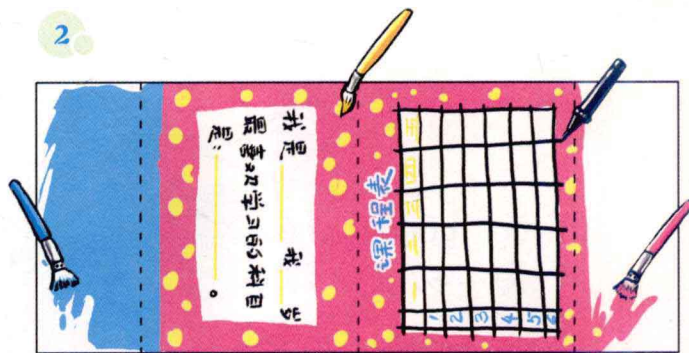 2
我是____ 我__岁
最喜欢学习的科目
是:____。
课程表
一 二 三 四 五
1
2
3
4
5
6